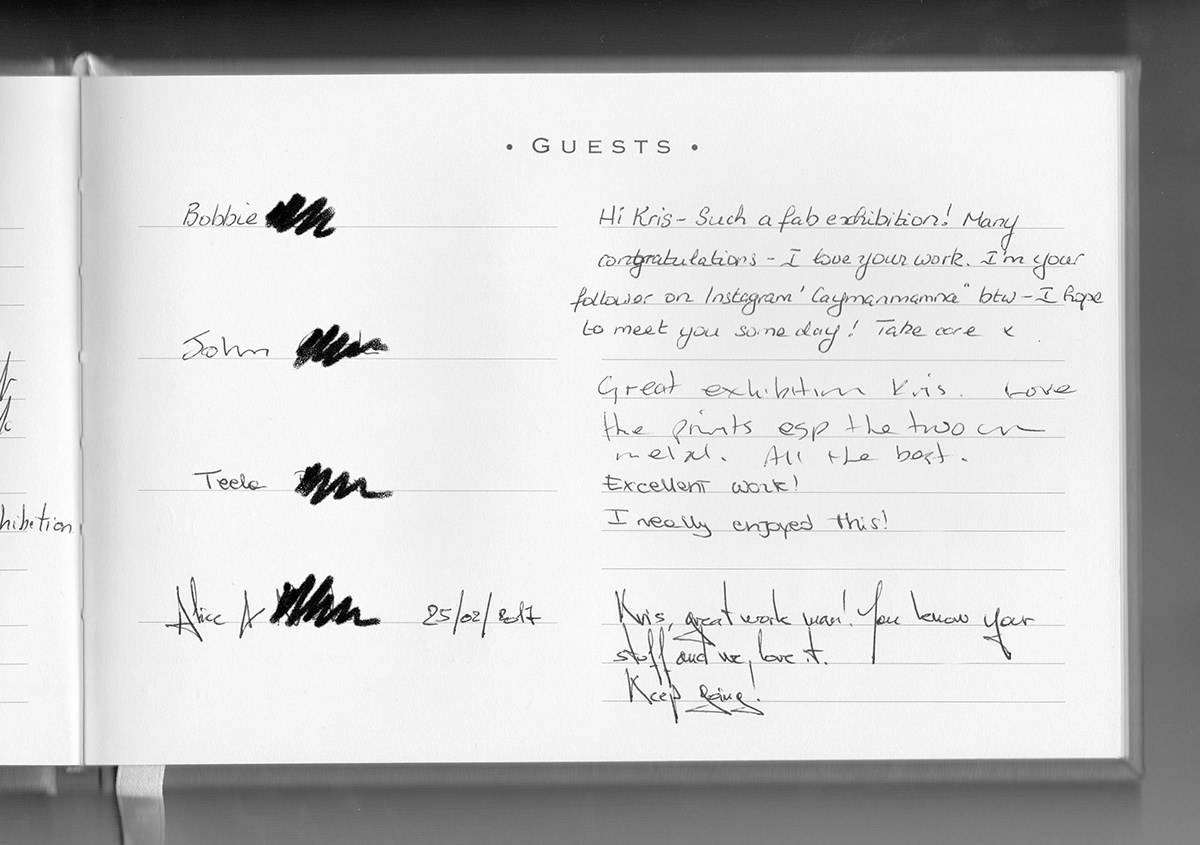 • GUESTS •
Bobbie
Hi Kris - Such a fab exhibition! Many
congratulations - I love your work. I'm your
follower on Instagram 'Caymanmamna" btw - I hope
to meet you some day! Take care x
John
Great exhibition Kris. Love
the prints esp the two on
metal. All the best.
Teele
Excellent work!
I really enjoyed this!
hibition
Alice A 25/02/2017
Kris, great work man! You know your
stuff and we, love it.
Keep going!